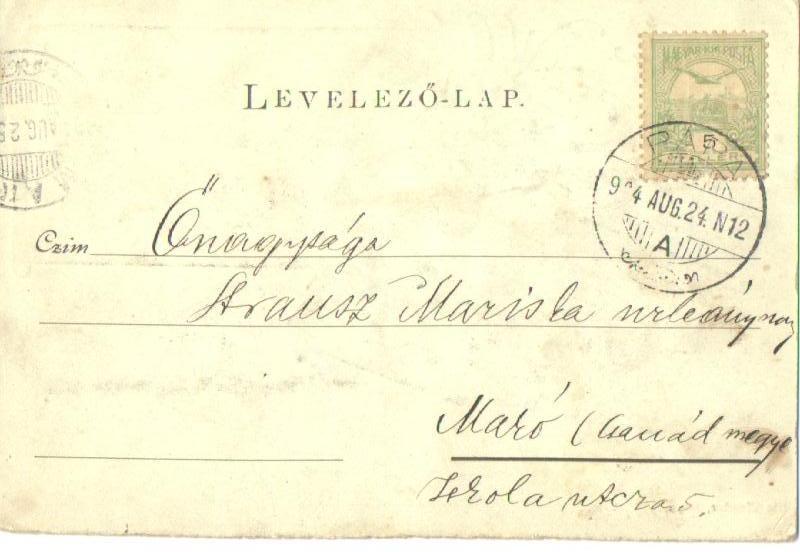 MAGYAR KIR. POSTA
LEVELEZŐ-LAP.
AUG. 25
A
PÁPA
5
904 AUG. 24. N12
A
Czim Önagysága
Strausz Mariska urleánynak
Maró (Csanád megye
Iskola utcza 5.